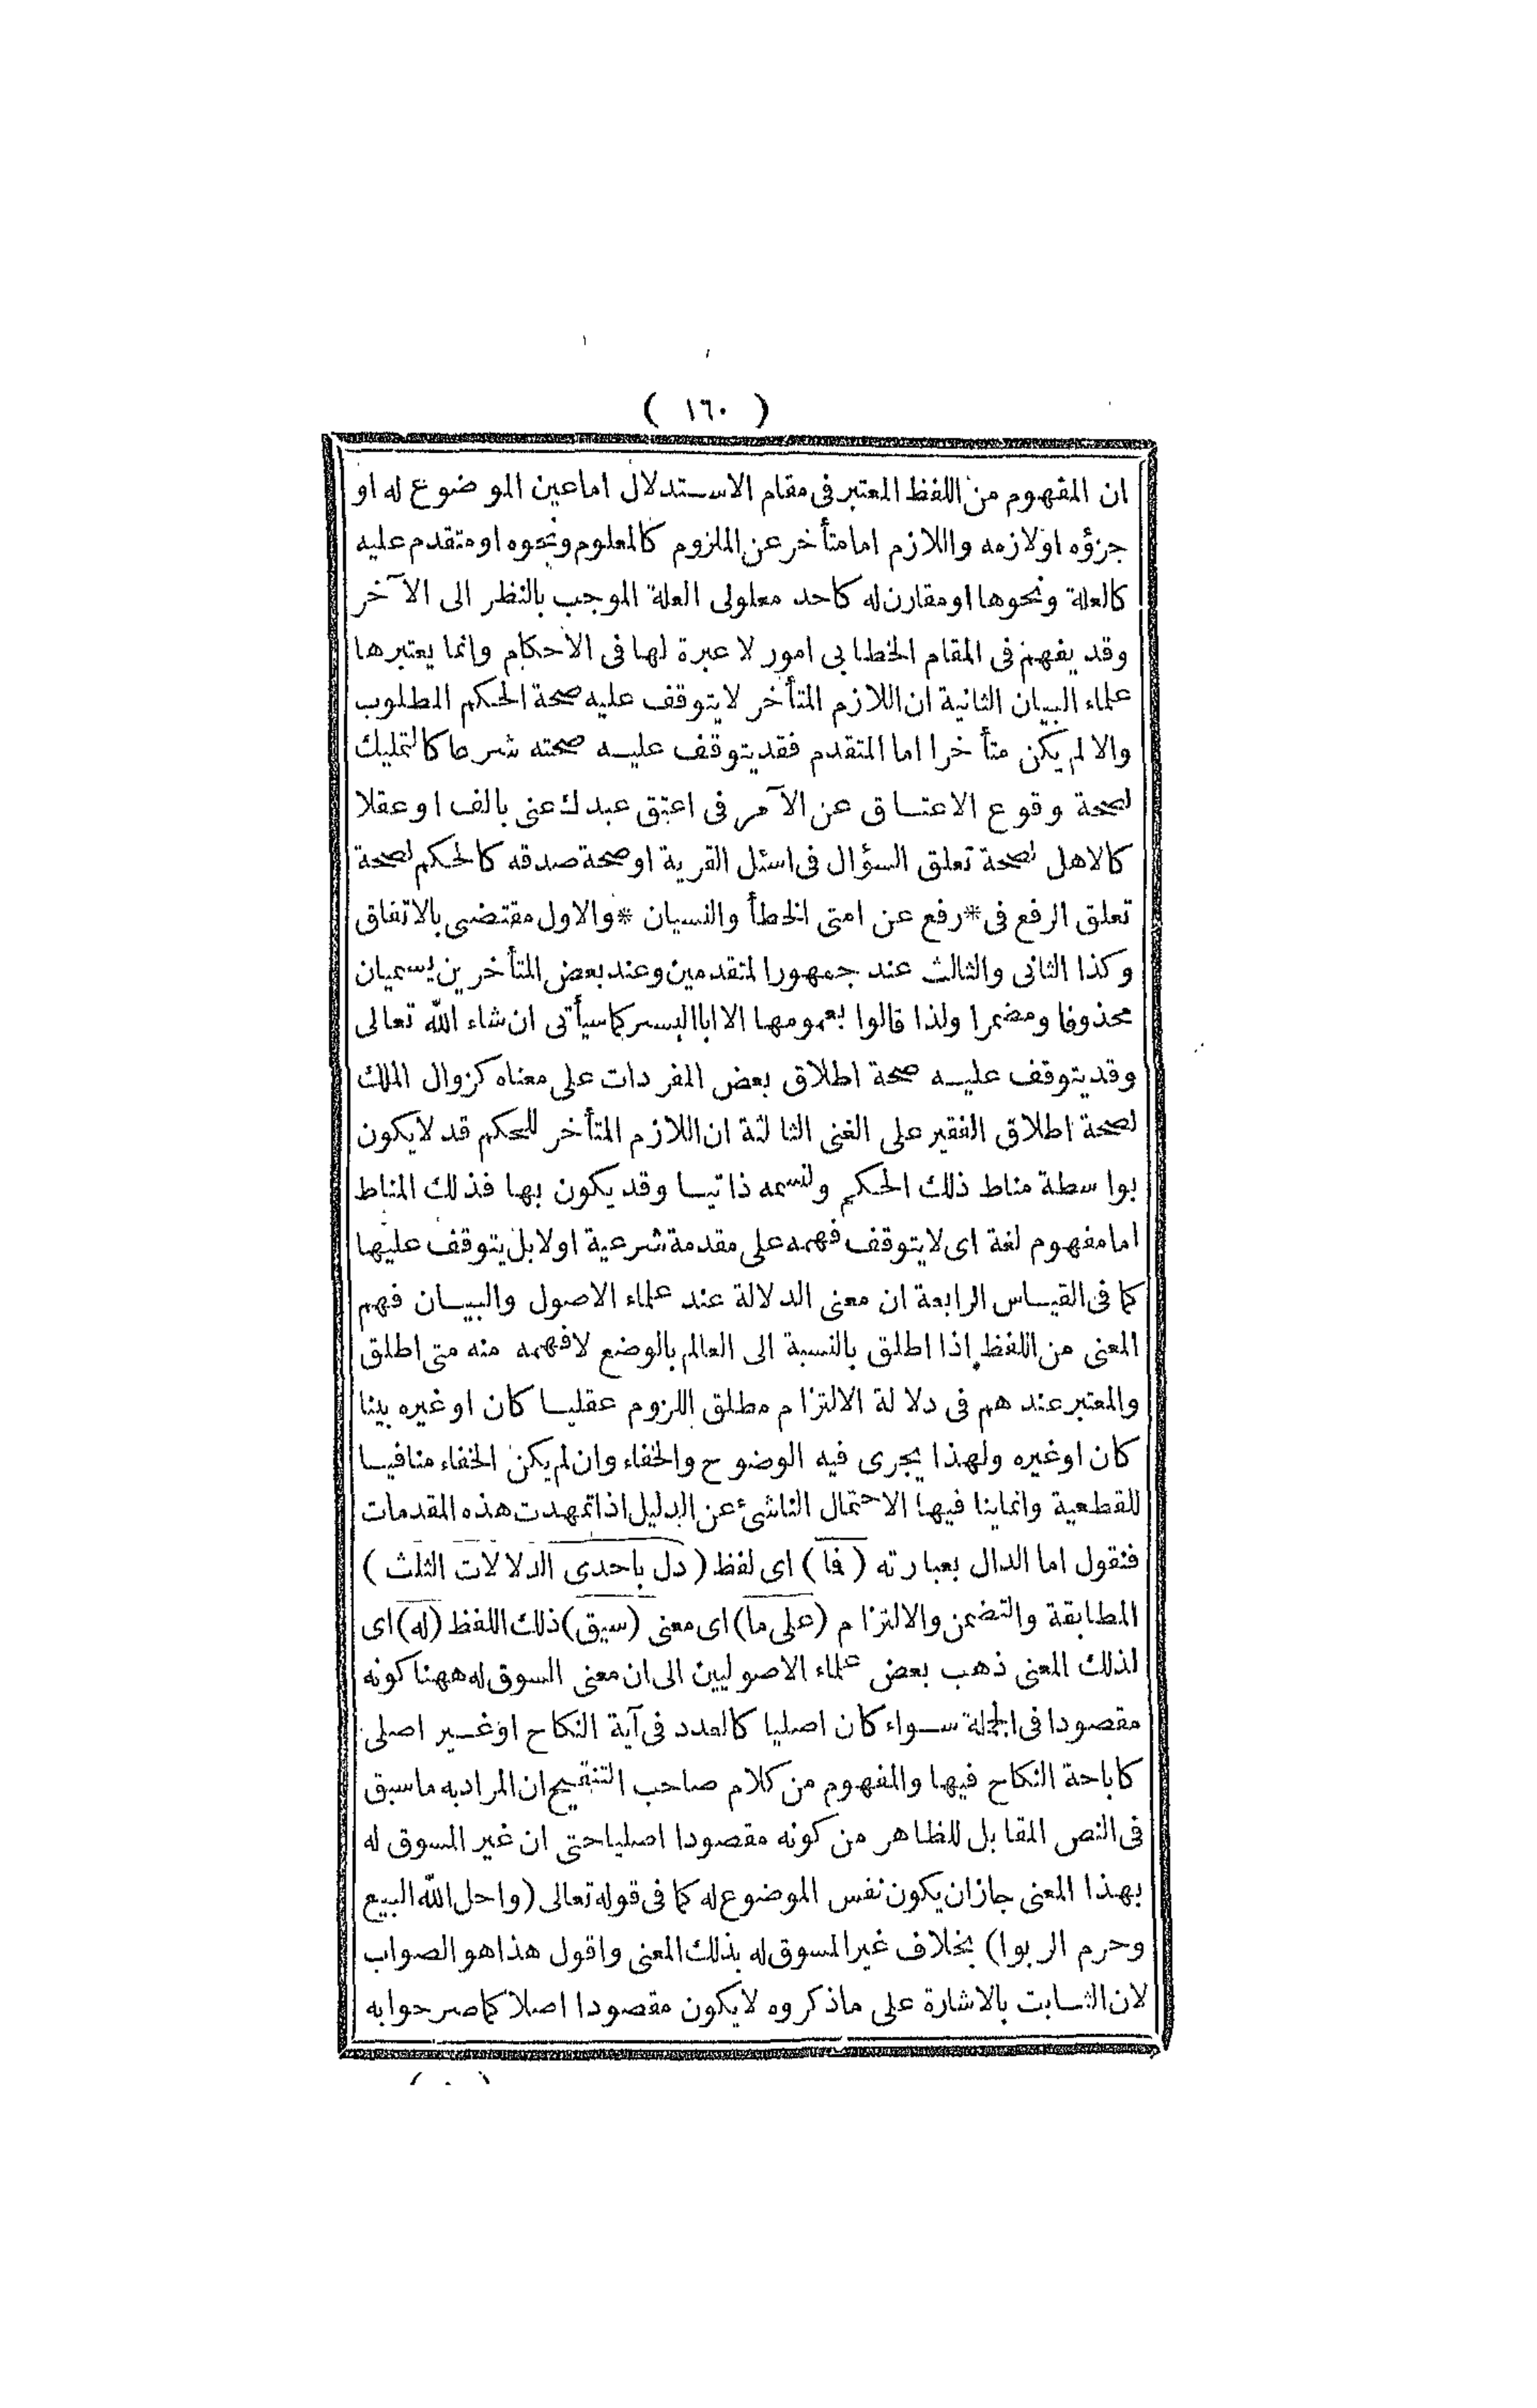 ( ١٦٠ )
ان المفهوم من اللفظ المعتبر فى مقام الاستدلال اما عين الموضوع له او
جزؤه او لازمه واللازم اما متأخر عن الملزوم كالمعلوم ونحوه او متقدم عليه
كالعلة ونحوها او مقارن له كاحد معلولى العلة الموجب بالنظر الى الآخر
وقد يفهم فى المقام الخطابى امور لا عبرة لها فى الاحكام وانما يعتبرها
علماء البيان الثانية ان اللازم المتأخر لا يتوقف عليه صحة الحكم المطلوب
والا لم يكن متأخرا اما المتقدم فقد يتوقف عليه صحته شرعا كالتمليك
لصحة وقوع الاعتاق عن الآمر فى اعتق عبدك عنى بالف او عقلا
كالاهل لصحة تعلق السؤال فى اسئل القرية او صحة صدقه كالحكم لصحة
تعلق الرفع فى * رفع عن امتى الخطأ والنسيان * والاول مقتضى بالاتفاق
وكذا الثانى والثالث عند جمهور المتقدمين وعند بعض المتأخرين يسميان
محذوفا ومضمرا ولذا قالوا بعمومها الا ابا اليسر كما سيأتى ان شاء الله تعالى
وقد يتوقف عليه صحة اطلاق بعض المفردات على معناه كزوال الملك
لصحة اطلاق الفقير على الغنى الثالثة ان اللازم المتأخر للحكم قد لا يكون
بواسطة مناط ذلك الحكم ولنسمه ذاتيا وقد يكون بها فذلك المناط
اما مفهوم لغة اى لا يتوقف فهمه على مقدمة شرعية او لا بل يتوقف عليها
كما فى القياس الرابعة ان معنى الدلالة عند علماء الاصول والبيان فهم
المعنى من اللفظ اذا اطلق بالنسبة الى العالم بالوضع لا فهمه منه متى اطلق
والمعتبر عندهم فى دلالة الالتزام مطلق اللزوم عقليا كان او غيره بينا
كان او غيره ولهذا يجرى فيه الوضوح والخفاء وان لم يكن الخفاء منافيا
للقطعية وانما ينافيها الاحتمال الناشئ عن الدليل اذا تمهدت هذه المقدمات
فنقول اما الدال بعبارته ( فا ) اى لفظ ( دل باحدى الدلالات الثلث )
المطابقة والتضمن والالتزام ( على ما ) اى معنى ( سيق ) ذلك اللفظ ( له ) اى
لذلك المعنى ذهب بعض علماء الاصوليين الى ان معنى السوق له ههنا كونه
مقصودا فى الجملة سواء كان اصليا كالعدد فى آية النكاح او غير اصلى
كاباحة النكاح فيها والمفهوم من كلام صاحب التنقيح ان المراد به ما سبق
فى النص المقابل للظاهر من كونه مقصودا اصليا حتى ان غير المسوق له
بهذا المعنى جاز ان يكون نفس الموضوع له كما فى قوله تعالى ( واحل الله البيع
وحرم الربوا ) بخلاف غير المسوق له بذلك المعنى واقول هذا هو الصواب
لان الثابت بالاشارة على ما ذكروه لا يكون مقصودا اصلا كما صرحوا به